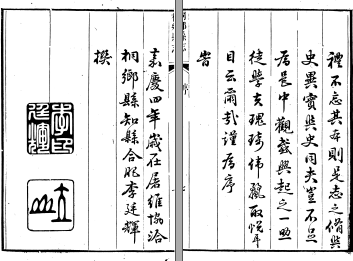 禮不忘其本則是志之脩與
史異實與史同夫豈不足
居是中觀感興起之一助
徒學夫瑰琦偉麗取悅耳
目云爾哉謹為序
旹
嘉慶四年歲在屠維協洽
桐鄉縣知縣合肥李廷輝
撰
序